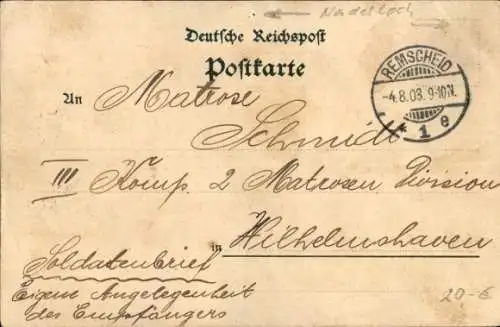 Nadelloch
Deutsche Reichspost
Postkarte
REMSCHEID
-4.8.03. 9-10N.
* 1 e
An Matrose
Schmidt
III Komp. 2 Matrosen Division
in Wilhelmshaven
Soldatenbrief
Eigene Angelegenheit
des Empfängers
20-€